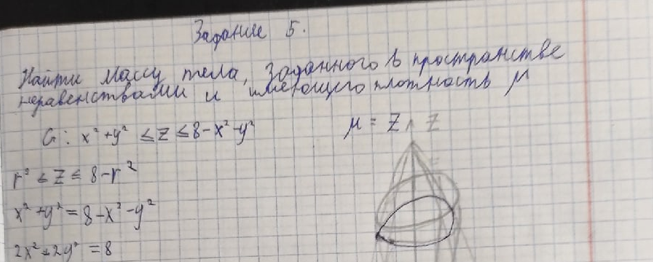 Задание 5.
Найти массу тела, заданного в пространстве
неравенствами и имеющего плотность μ
G: x² + y² ≤ z ≤ 8 - x² - y² μ = z z
r² ≤ z ≤ 8 - r²
x² + y² = 8 - x² - y²
2x² + 2y² = 8